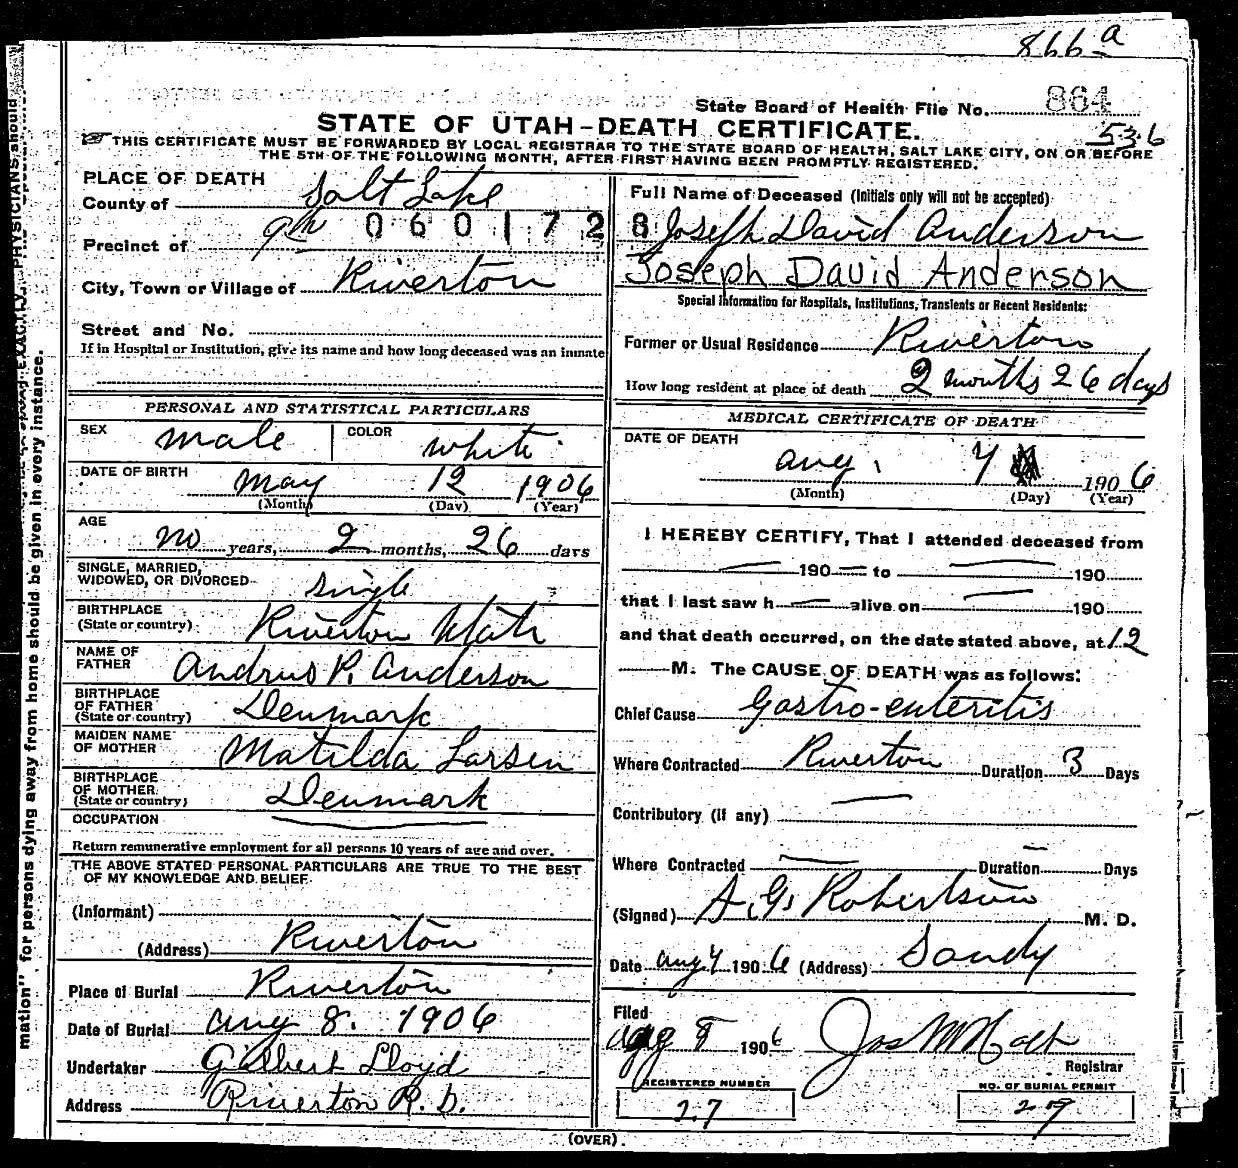 866 a
State Board of Health File No. 864
STATE OF UTAH–DEATH CERTIFICATE. 536
THIS CERTIFICATE MUST BE FORWARDED BY LOCAL REGISTRAR TO THE STATE BOARD OF HEALTH, SALT LAKE CITY, ON OR BEFORE
THE 5TH OF THE FOLLOWING MONTH, AFTER FIRST HAVING BEEN PROMPTLY REGISTERED.
PLACE OF DEATH
County of Salt Lake
0601728
Precinct of 9th
City, Town or Village of Riverton
Street and No.
If in Hospital or Institution, give its name and how long deceased was an inmate
PERSONAL AND STATISTICAL PARTICULARS
SEX male COLOR white
DATE OF BIRTH May 12 1906
(Month) (Day) (Year)
AGE
no years, 2 months, 26 days
SINGLE, MARRIED,
WIDOWED, OR DIVORCED single
BIRTHPLACE
(State or country) Riverton Utah
NAME OF
FATHER Andrus P. Anderson
BIRTHPLACE
OF FATHER
(State or country) Denmark
MAIDEN NAME
OF MOTHER Matilda Larsen
BIRTHPLACE
OF MOTHER
(State or country) Denmark
OCCUPATION
Return remunerative employment for all persons 10 years of age and over.
THE ABOVE STATED PERSONAL PARTICULARS ARE TRUE TO THE BEST
OF MY KNOWLEDGE AND BELIEF
(Informant)
(Address) Riverton
Place of Burial Riverton
Date of Burial Aug 8. 1906
Undertaker Gilbert Lloyd
Address Riverton R.D.
Full Name of Deceased (Initials only will not be accepted)
Joseph David Anderson
Joseph David Anderson
Special Information for Hospitals, Institutions, Transients or Recent Residents:
Former or Usual Residence Riverton
How long resident at place of death 2 months 26 days
MEDICAL CERTIFICATE OF DEATH
DATE OF DEATH
Aug. 7 1906
(Month) (Day) (Year)
I HEREBY CERTIFY, That I attended deceased from
— 190 — to — 190
that I last saw h — alive on — 190
and that death occurred, on the date stated above, at 12
M. The CAUSE OF DEATH was as follows:
Chief Cause Gastro-enteritis
Where Contracted Riverton Duration 3 Days
Contributory (If any) —
Where Contracted — Duration — Days
(Signed) A. G. Robertson M. D.
Date Aug 7 1906 (Address) Sandy
Filed
Aug 8 1906 Jos M Holt
Registrar
REGISTERED NUMBER
27
NO. OF BURIAL PERMIT
29
(OVER)
mation" for persons dying away from home should be given in every instance.